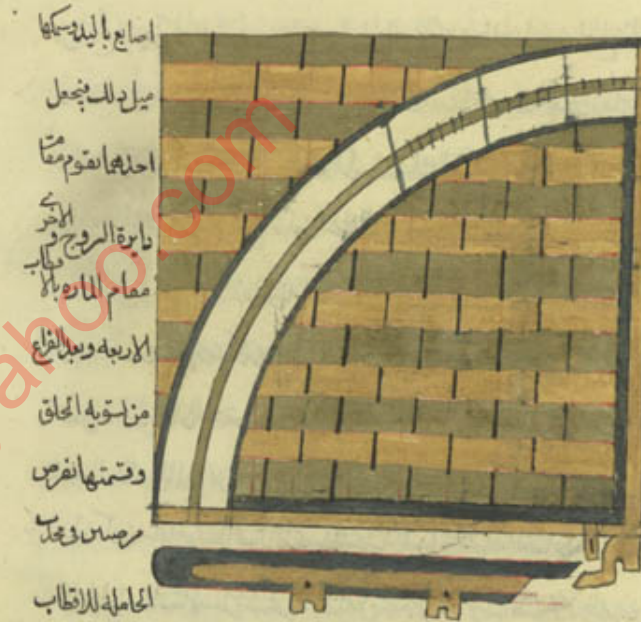 اصابع باليد وسمكها
ميل ذلك فيجعل
احدهما تقوم مقامت
دايرة البروج و الاخرى
مقام الماره بالاقطاب
الاربعه وبعد الفراغ
من تسويه الحلق
وقسمتها نفرض
فى محدب
الحامله للاقطاب
ahoo.com